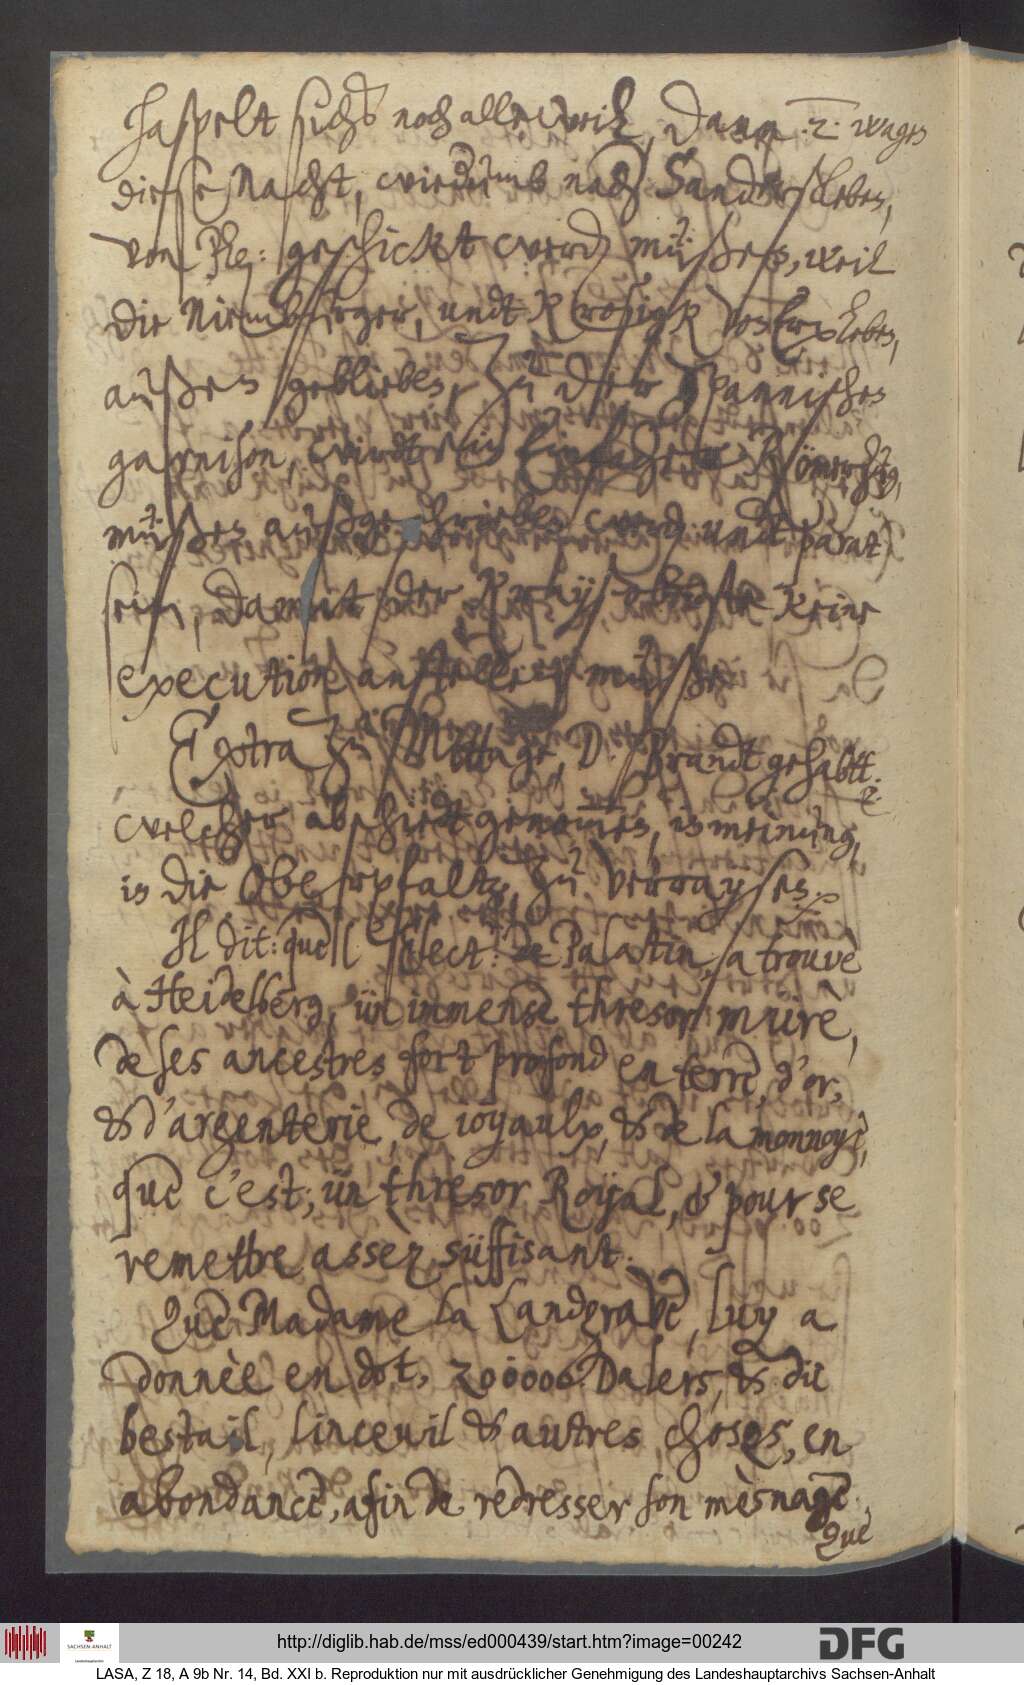 haspelt sichs noch alleweil, dann .2. wagen
diese Nacht, wiederumb nach Sanderßleben,
von Ple: geschickt werden müßen, weil
die Niemburger, undt Krosigk von Erxleben,
außen geblieben. Zu der Spannischen
garnison, wirdt ein einfacher Römerzug,
müßen außgeschrieben werden undt parat
sein, damitt der Krayßoberste keine
execution anstellen müße.
Extra zu Mittage, D. Brandt gehabtt.
welcher abschiedt genommen, in meinung,
in die OberPfaltz, zu verraysen.
Il dit: que l'Elect: de Palatin, a trouvè
à Heidelberg, ün immense thresor mürè,
de ses ancestres fort profond en terre, d'or,
& d'argenterie, de ioyaulx, & de la monnoye,
que c'est, ün thresor Royal, & pour se
remettre assez süffisant.
Que Madame la Landgrave, luy a
donnèe en dot, 200000 Dalers, & dü
bestail, linceuil & autres choses, en
abondance, afin de redresser son mèsnage.
Que
http://diglib.hab.de/mss/ed000439/start.htm?image=00242
SACHSEN-ANHALT
DFG
LASA, Z 18, A 9b Nr. 14, Bd. XXI b. Reproduktion nur mit ausdrücklicher Genehmigung des Landeshauptarchivs Sachsen-Anhalt